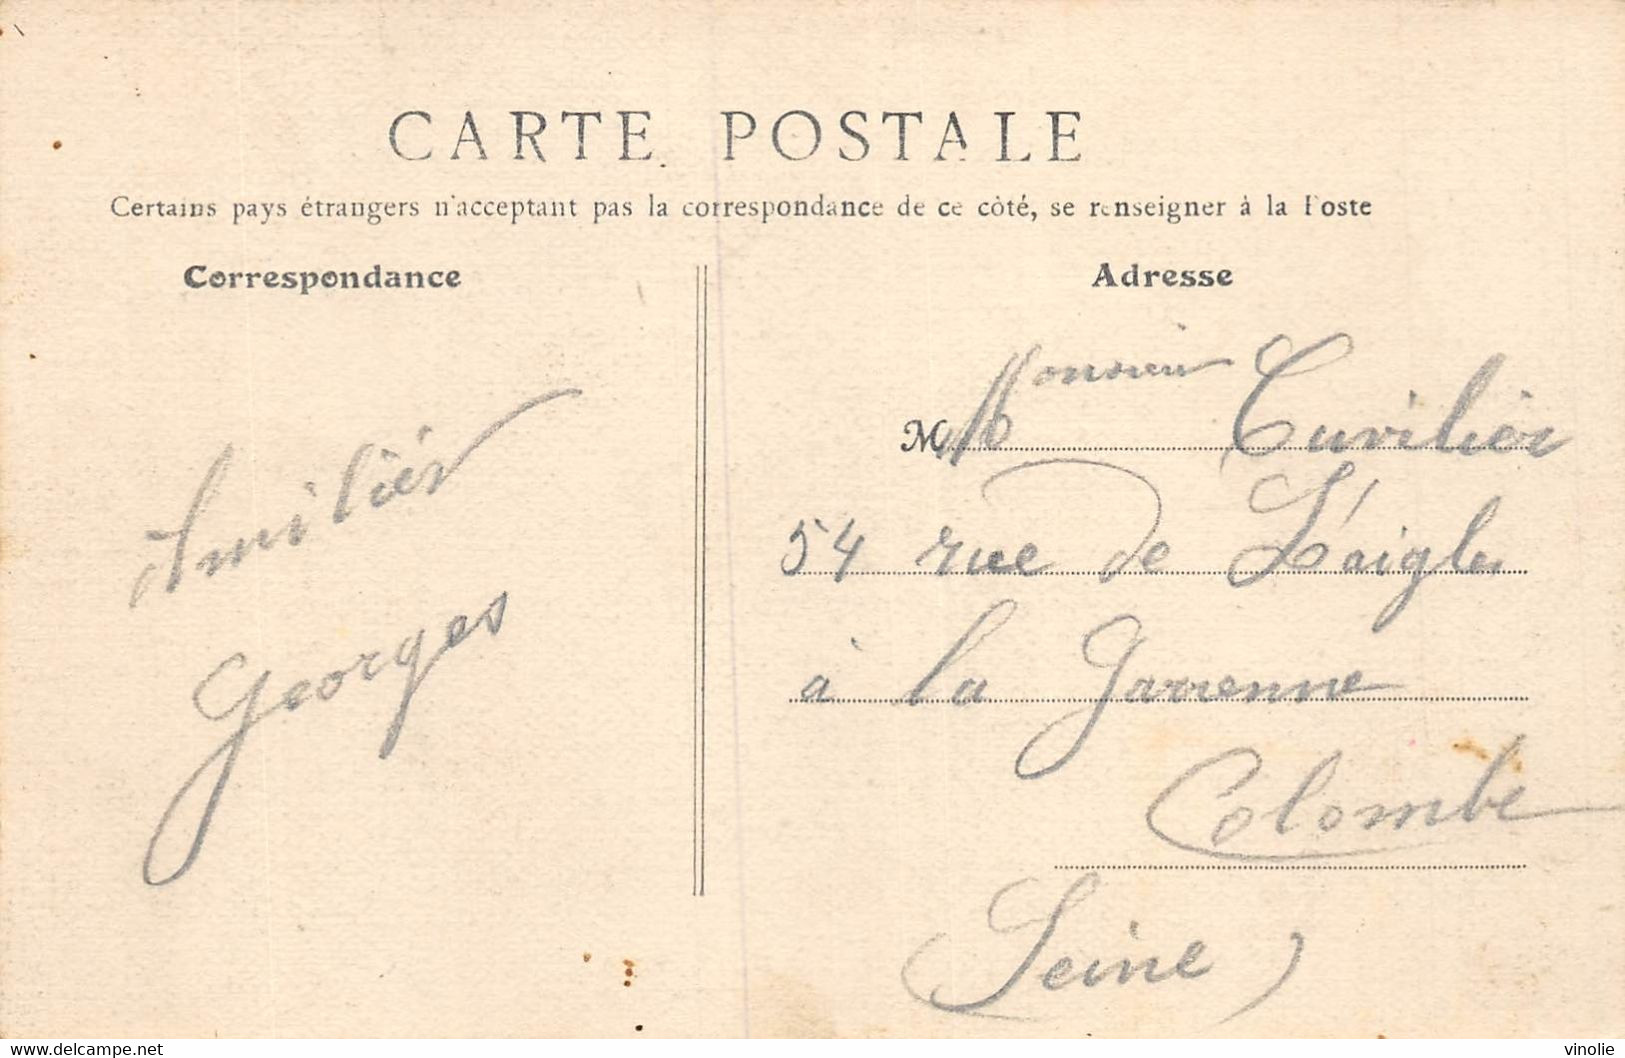 CARTE POSTALE
Certains pays étrangers n'acceptant pas la correspondance de ce côté, se renseigner à la Poste
Correspondance
Adresse
Amiliés
Georges
M Monsieur Cuvilier
54 rue de L'aigle
à la Garenne
Colombe
(Seine)
www.delcampe.net
vinolie